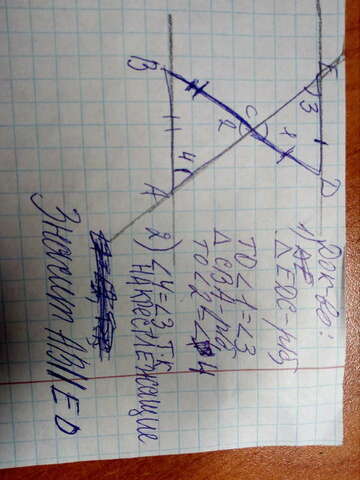 Док-во:
1) △EDC - р/б
то ∠1 = ∠3
△CBA - р/б
то ∠2 = ∠4
2) ∠4 = ∠3 т.к.
накрест лежащие
Значит AB || ED
B
A
C
D
E
1
2
3
4